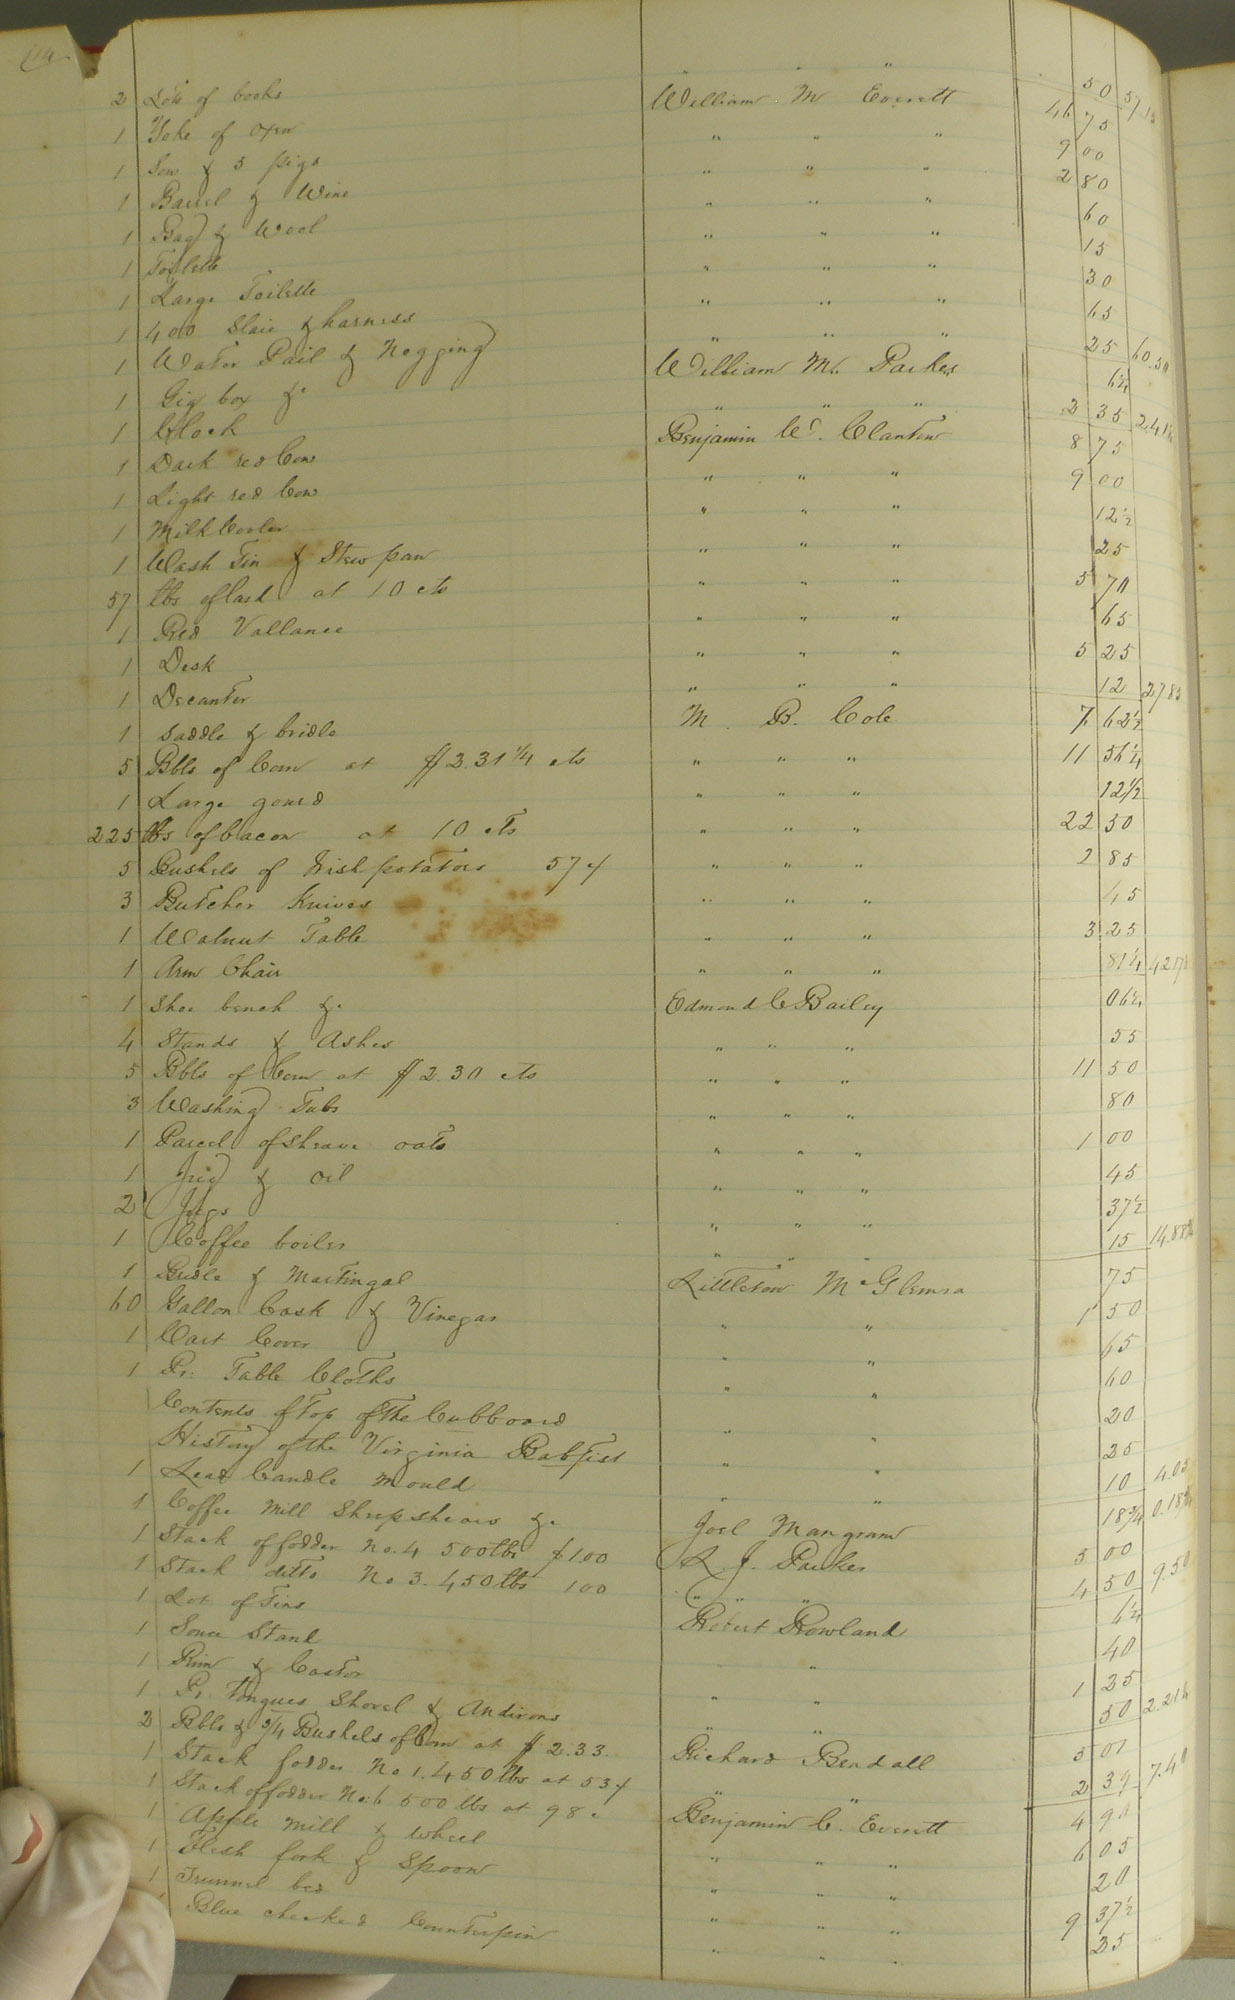 2 Lots of books William M Everett 50 57
1 Yoke of oxen " " " 46 75
1 Sow & 5 pigs " " " 9 00
1 Barrel & Wine " " " 2 80
1 Bag & Wool " " " 60
1 Toilette " " " 15
1 Large Toilette " " " 30
1 400 Slaie & harness " " " 65
1 Water Pail & Nogging " " " 25 60.50
1 Gig box &c William M. Parkes 6¼
1 Clock " " " 2 35 2.41¼
1 Dark red Cow Benjamin C. Clanton 8 75
1 Light red Cow " " " 9 00
1 Milk Cooler " " " 12½
1 Wash Tin & Stew pan " " " 25
57 lbs of lard at 10 cts " " " 5 70
1 Red Vallance " " " 65
1 Desk " " " 5 25
1 Decanter " " " 12 27 85
1 Saddle & bridle M B. Cole 7 62½
5 Bbls of Corn at $2.31¼ cts " " " 11 56¼
1 Large gourd " " " 12½
225 lbs of bacon at 10 cts " " " 22 50
5 Bushels of Irish potatoes 57 ¢ " " " 2 85
3 Butcher Knives " " " 45
1 Walnut Table " " " 3 25
1 Arm Chair " " " 81¼
1 Shoe bench &c Edmond C Bailey 06¼
4 Stands & Ashes " " " 55
5 Bbls of Corn at $2.30 cts " " " 11 50
3 Washing Tubs " " " 80
1 Parcel of sheave oats " " " 1 00
1 Jug & oil " " " 45
2 Jugs " " " 37½
1 Coffee boiler " " " 15 14.88¾
1 Bridle & Martingal Littleton 75
60 Gallon Cask & Vinegar " " 1 50
1 Cart Cover " " 65
1 Pr. Table Cloths " " 60
Contents of Top of the Cubboard " " 20
History of the Virginia Babtist " " 25
1 Lead Candle Mould " " 10 4.05
1 Coffee Mill Sheepshears &c Joel Mangram 18¾ 0.18¾
1 Stack of fodder No. 4 500 lbs $1.00 L J. Parkes 5 00
1 Stack ditto No 3. 450 lbs 100 " " " 4 50 9.50
1 Lot of Tins Robert Rowland 6¼
1 Souce Stand " 40
1 Rim & Castor " " 1 25
1 Pr. Tongues Shovel & Andirons " " 50 2.21¼
2 Bbls & ¾ Bushels of Corn at $2.33. Richard Bendall 5 01
1 Stack fodder No 1. 450 lbs at 53 ¢ " " 2 39 7.40
1 Stack of fodder No: 6 500 lbs at 98 c Benjamin C. Everett 4 90
1 Apple Mill & wheel " " " 6 05
1 Flesh fork & Spoon " " " 20
1 Trunnel bed " " " 9 37½
Blue checked Counterpin " " " 25